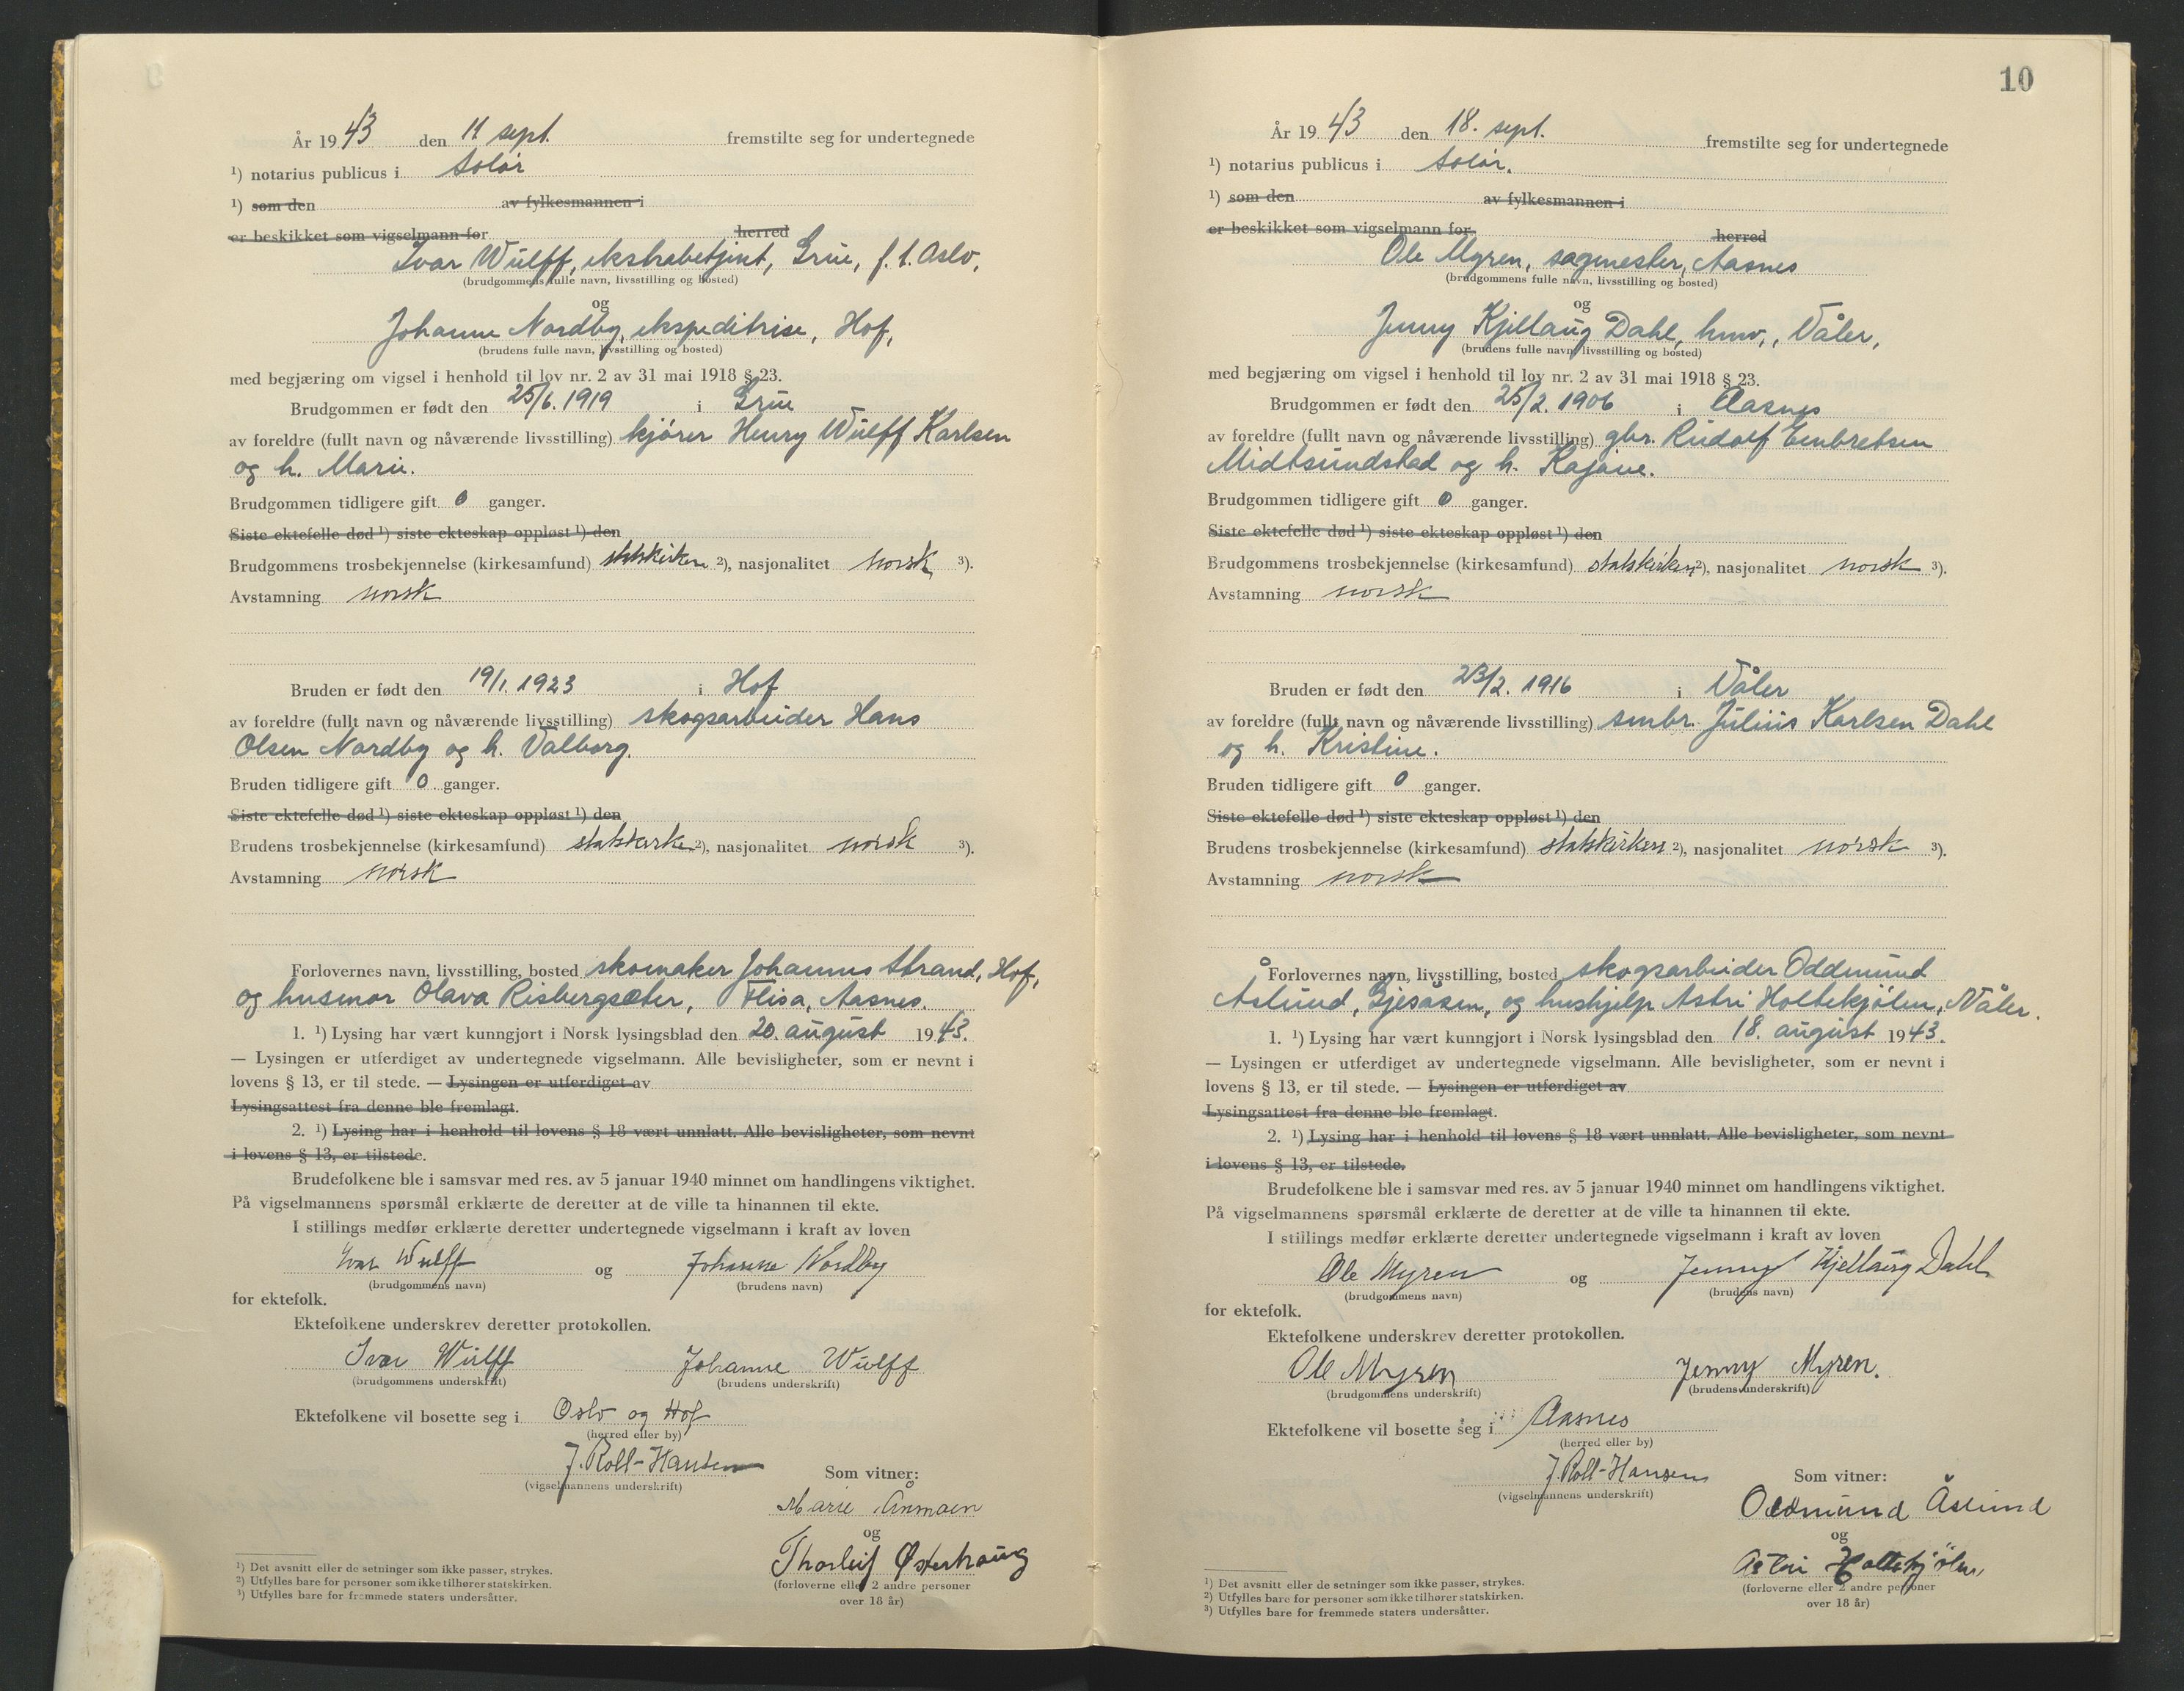 År 1943 den 11 sept. fremstilte seg for undertegnede
¹) notarius publicus i Solør
¹) som den av fylkesmannen i
er beskikket som vigselmann for herred
Ivar Wulff, ekstrabetjent, Grue, f. t. Oslo,
(brudgommens fulle navn, livsstilling og bosted)
og
Johanne Nordby, ekspeditrise, Hof,
(brudens fulle navn, livsstilling og bosted)
med begjæring om vigsel i henhold til lov nr. 2 av 31 mai 1918 § 23.
Brudgommen er født den 25/6. 1919 i Grue
av foreldre (fullt navn og nåværende livsstilling) kjører Henry Wulff Karlsen
og h. Marie.
Brudgommen tidligere gift 0 ganger.
Siste ektefelle død ¹) siste ekteskap oppløst ¹) den
Brudgommens trosbekjennelse (kirkesamfund) statskirken ²), nasjonalitet norsk ³).
Avstamning norsk
Bruden er født den 19/1. 1923 i Hof
av foreldre (fullt navn og nåværende livsstilling) skogsarbeider Hans
Olsen Nordby og h. Valborg.
Bruden tidligere gift 0 ganger.
Siste ektefelle død ¹) siste ekteskap oppløst ¹) den
Brudens trosbekjennelse (kirkesamfund) statskirke ²), nasjonalitet norsk ³).
Avstamning norsk
Forlovernes navn, livsstilling, bosted skomaker Johannes Strand, Hof,
og husmor Olava Risbergsæter, Flisa, Aasnes.
1. ¹) Lysing har vært kunngjort i Norsk lysingsblad den 20. august 1943.
— Lysingen er utferdiget av undertegnede vigselmann. Alle bevisligheter, som er nevnt i
lovens § 13, er til stede. — Lysingen er utferdiget av
Lysingsattest fra denne ble fremlagt.
2. ¹) Lysing har i henhold til lovens § 18 vært unnlatt. Alle bevisligheter, som nevnt
i lovens § 13, er tilstede.
Brudefolkene ble i samsvar med res. av 5 januar 1940 minnet om handlingens viktighet.
På vigselmannens spørsmål erklærte de deretter at de ville ta hinannen til ekte.
I stillings medfør erklærte deretter undertegnede vigselmann i kraft av loven
Ivar Wulff og Johanne Nordby
(brudgommens navn) (brudens navn)
for ektefolk.
Ektefolkene underskrev deretter protokollen.
Ivar Wulff Johanne Wulff
(brudgommens underskrift) (brudens underskrift)
Ektefolkene vil bosette seg i Oslo og Hof
(herred eller by)
J. Roll-Hansen
(vigselmannens underskrift)
Som vitner:
Marie Åsmoen
og
Thorleif Østerhaug
(forloverne eller 2 andre personer
over 18 år)
¹) Det avsnitt eller de setninger som ikke passer, strykes.
²) Utfylles bare for personer som ikke tilhører statskirken.
³) Utfylles bare for fremmede staters undersåtter.
10
År 1943 den 18. sept. fremstilte seg for undertegnede
¹) notarius publicus i Solør.
¹) som den av fylkesmannen i
er beskikket som vigselmann for herred
Ole Myren, sagmester, Aasnes
(brudgommens fulle navn, livsstilling og bosted)
og
Jenny Kjellaug Dahl, hmv., Våler,
(brudens fulle navn, livsstilling og bosted)
med begjæring om vigsel i henhold til lov nr. 2 av 31 mai 1918 § 23.
Brudgommen er født den 25/2. 1906 i Aasnes
av foreldre (fullt navn og nåværende livsstilling) gbr. Rudolf Embretsen
Midtsundstad og h. Kajane.
Brudgommen tidligere gift 0 ganger.
Siste ektefelle død ¹) siste ekteskap oppløst ¹) den
Brudgommens trosbekjennelse (kirkesamfund) statskirken ²), nasjonalitet norsk ³).
Avstamning norsk
Bruden er født den 23/2. 1916 i Våler
av foreldre (fullt navn og nåværende livsstilling) smbr. Julius Karlsen Dahl
og h. Kristine.
Bruden tidligere gift 0 ganger.
Siste ektefelle død ¹) siste ekteskap oppløst ¹) den
Brudens trosbekjennelse (kirkesamfund) statskirken ²), nasjonalitet norsk ³).
Avstamning norsk
Forlovernes navn, livsstilling, bosted skogsarbeider Oddmund
Åslund, Gjesåsen, og hushjelp Astri Holtekjølen, Våler.
1. ¹) Lysing har vært kunngjort i Norsk lysingsblad den 18. august 1943.
— Lysingen er utferdiget av undertegnede vigselmann. Alle bevisligheter, som er nevnt i
lovens § 13, er til stede. — Lysingen er utferdiget av
Lysingsattest fra denne ble fremlagt.
2. ¹) Lysing har i henhold til lovens § 18 vært unnlatt. Alle bevisligheter, som nevnt
i lovens § 13, er tilstede.
Brudefolkene ble i samsvar med res. av 5 januar 1940 minnet om handlingens viktighet.
På vigselmannens spørsmål erklærte de deretter at de ville ta hinannen til ekte.
I stillings medfør erklærte deretter undertegnede vigselmann i kraft av loven
Ole Myren og Jenny Kjellaug Dahl
(brudgommens navn) (brudens navn)
for ektefolk.
Ektefolkene underskrev deretter protokollen.
Ole Myren Jenny Myren.
(brudgommens underskrift) (brudens underskrift)
Ektefolkene vil bosette seg i Aasnes
(herred eller by)
J. Roll-Hansen
(vigselmannens underskrift)
Som vitner:
Oddmund Åslund
og
Astri Holtekjølen
(forloverne eller 2 andre personer
over 18 år)
¹) Det avsnitt eller de setninger som ikke passer, strykes.
²) Utfylles bare for personer som ikke tilhører statskirken.
³) Utfylles bare for fremmede staters undersåtter.